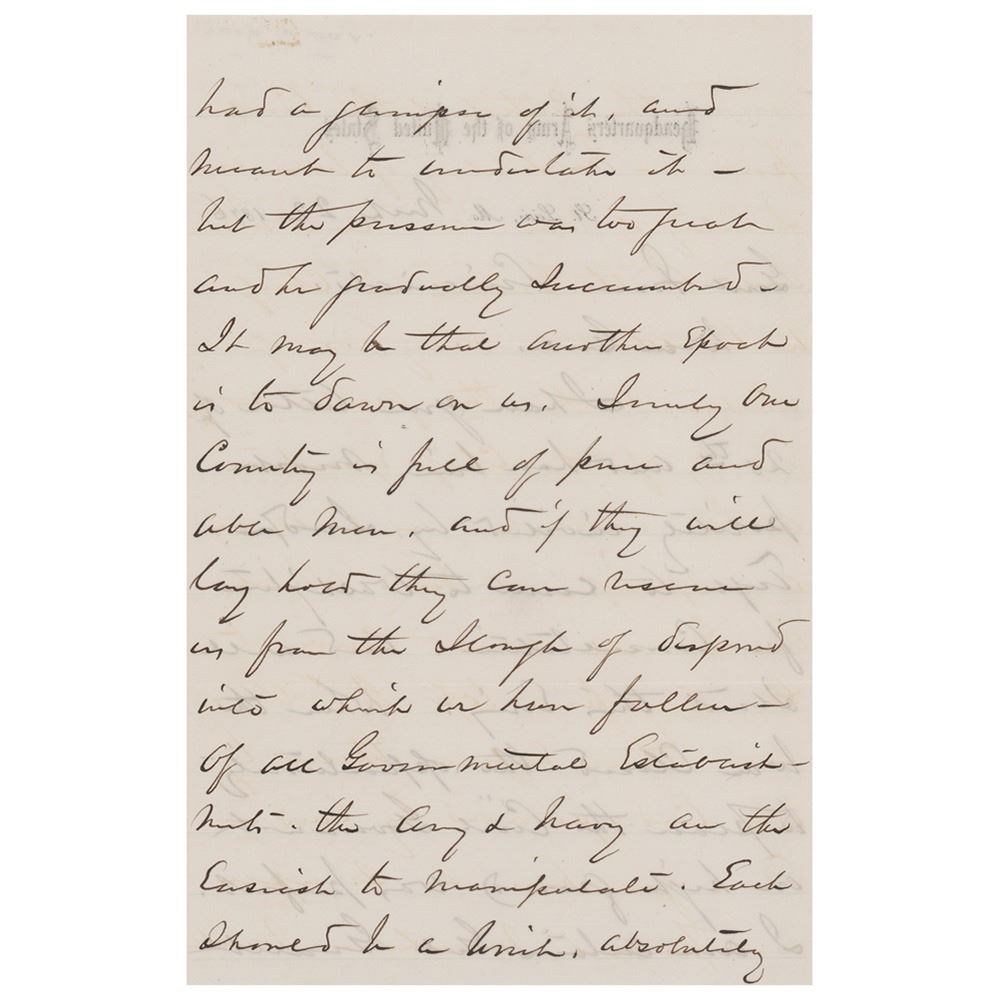 had a glimpse of it, and
meant to undertake it -
but the pressure was too great
and he gradually succumbed -
It may be that another Epoch
is to dawn on us. Surely Our
Country is full of pure and
able Men, and if they will
lay hold they can rescue
us from the Slough of despond
into which we have fallen -
Of all Governmental Establish-
ments. the Army & Navy are the
Easiest to manipulate. Each
should be a Unit, absolutely
Headquarters Army of the United States
St. Louis, Mo.